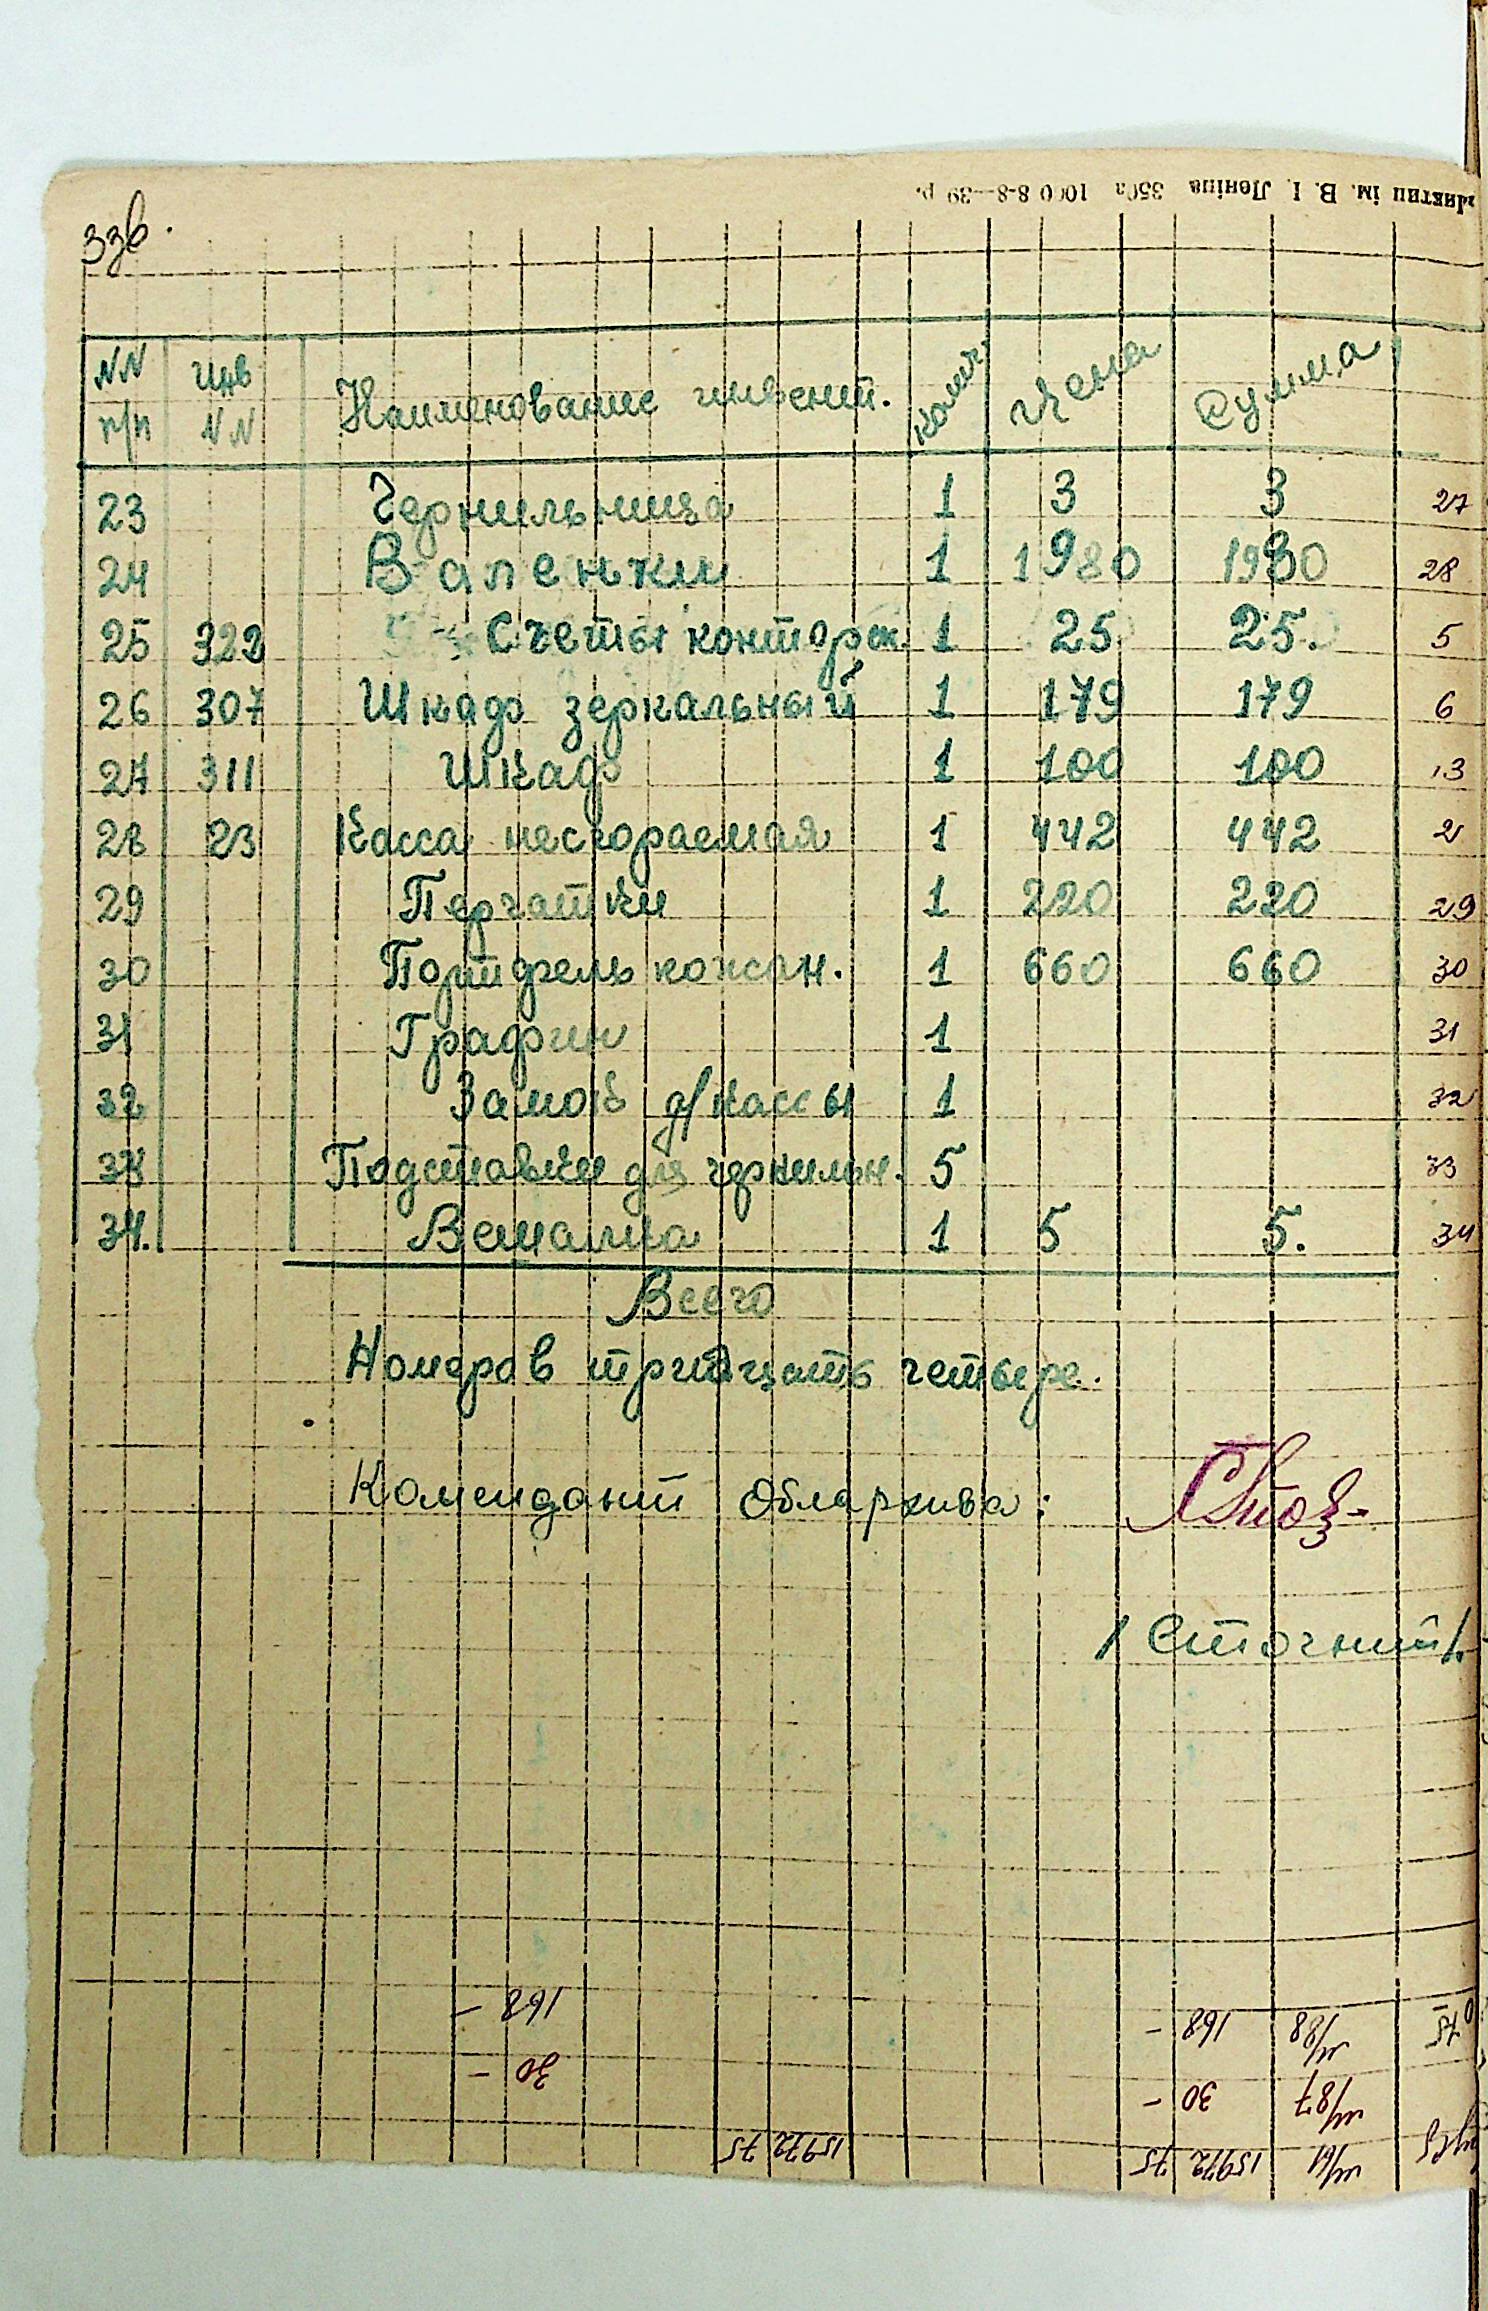 33в.
Диктии ім. В. І. Леніна 350а 1000 8-8-39 р.
NN п/п Инв NN Наименование инвент. Колич. Цена Сумма
23 Чернильница 1 3 3 27
24 Валенки 1 1980 1980 28
25 322 Счеты конторск. 1 25 25. 5
26 307 Шкаф зеркальный 1 179 179 6
27 311 Шкаф 1 100 100 13
28 23 Касса несгораемая 1 442 442 2
29 Перчатки 1 220 220 29
30 Портфель кожан. 1 660 660 30
31 Графин 1 31
32 Замок д/кассы 1 32
33 Подставки для чернильн. 5 33
34. Вешалка 1 5 5. 34
Всего
Номеров тридцать четыре.
Комендант Облархива:
/Сточний/.
168 - 168 - м/88
30 - 30 - м/87
15972 75 15972 75 м/61